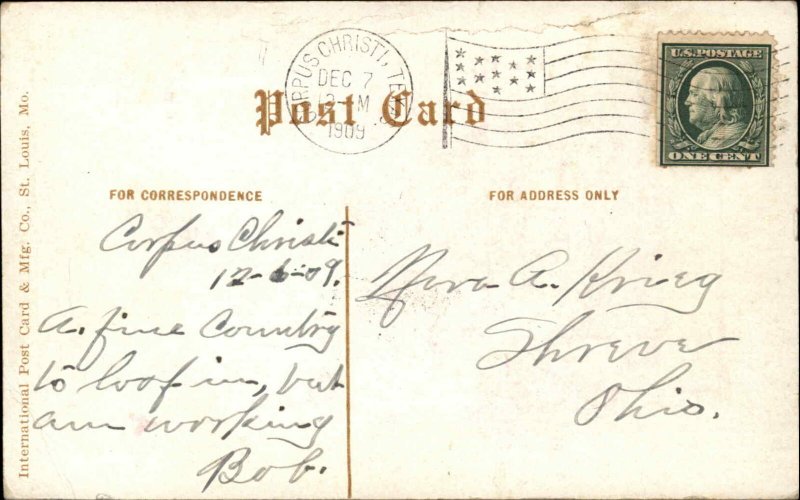 CORPUS CHRISTI, TEX.
DEC 7
M
1909
U.S. POSTAGE
ONE CENT
Post Card
FOR CORRESPONDENCE
FOR ADDRESS ONLY
International Post Card & Mfg. Co., St. Louis, Mo.
Corpus Christi
12-6-09.
A. fine Country
to loaf in, but
am working
Bob.
Nora A. Krieg
Shreve
Ohio.